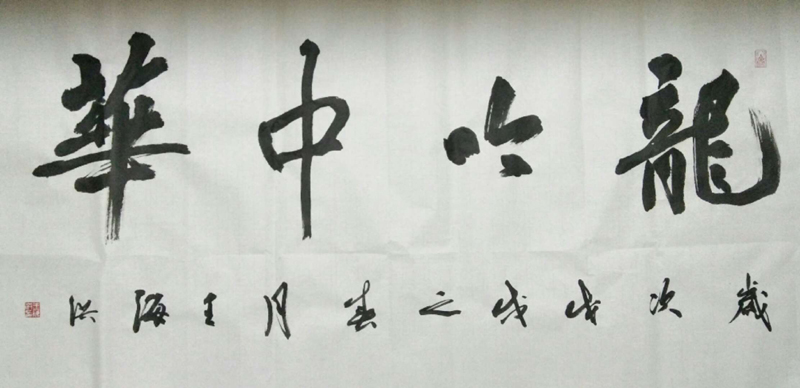 龍吟中華
歲次戊戌之春月王海洪